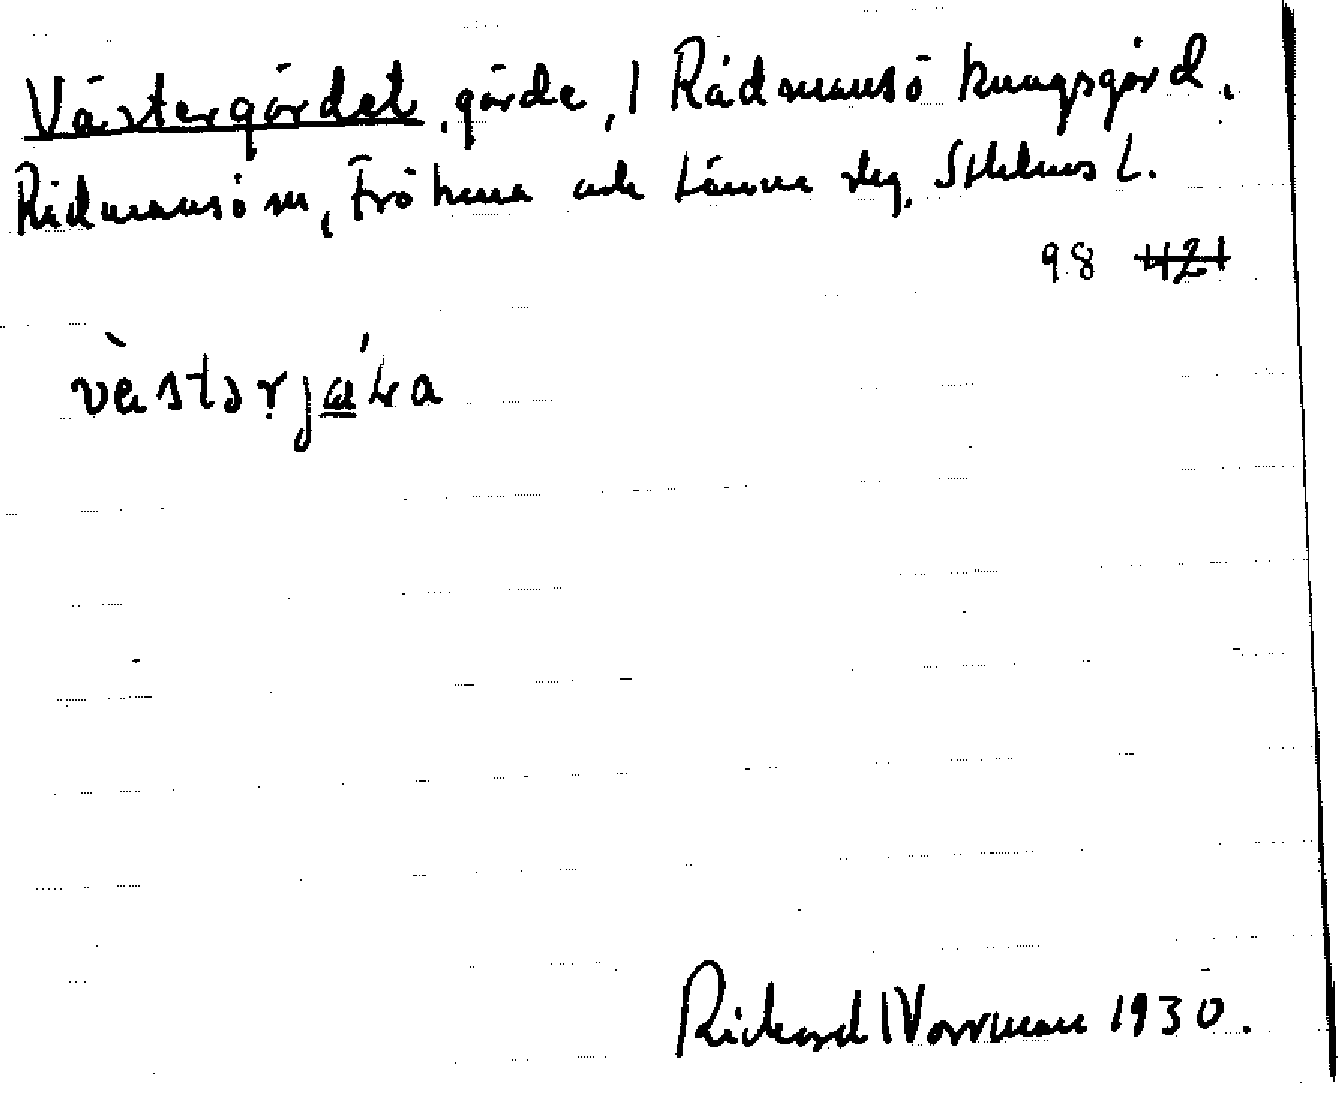 Västergärdet, gärde, i Rådmansö kungsgård.
Rådmansö sn, Frötuna och Länna slg, Sthlms L.
98 421
vɛ̀stərjǽɽa
Richard Norrman 1930.